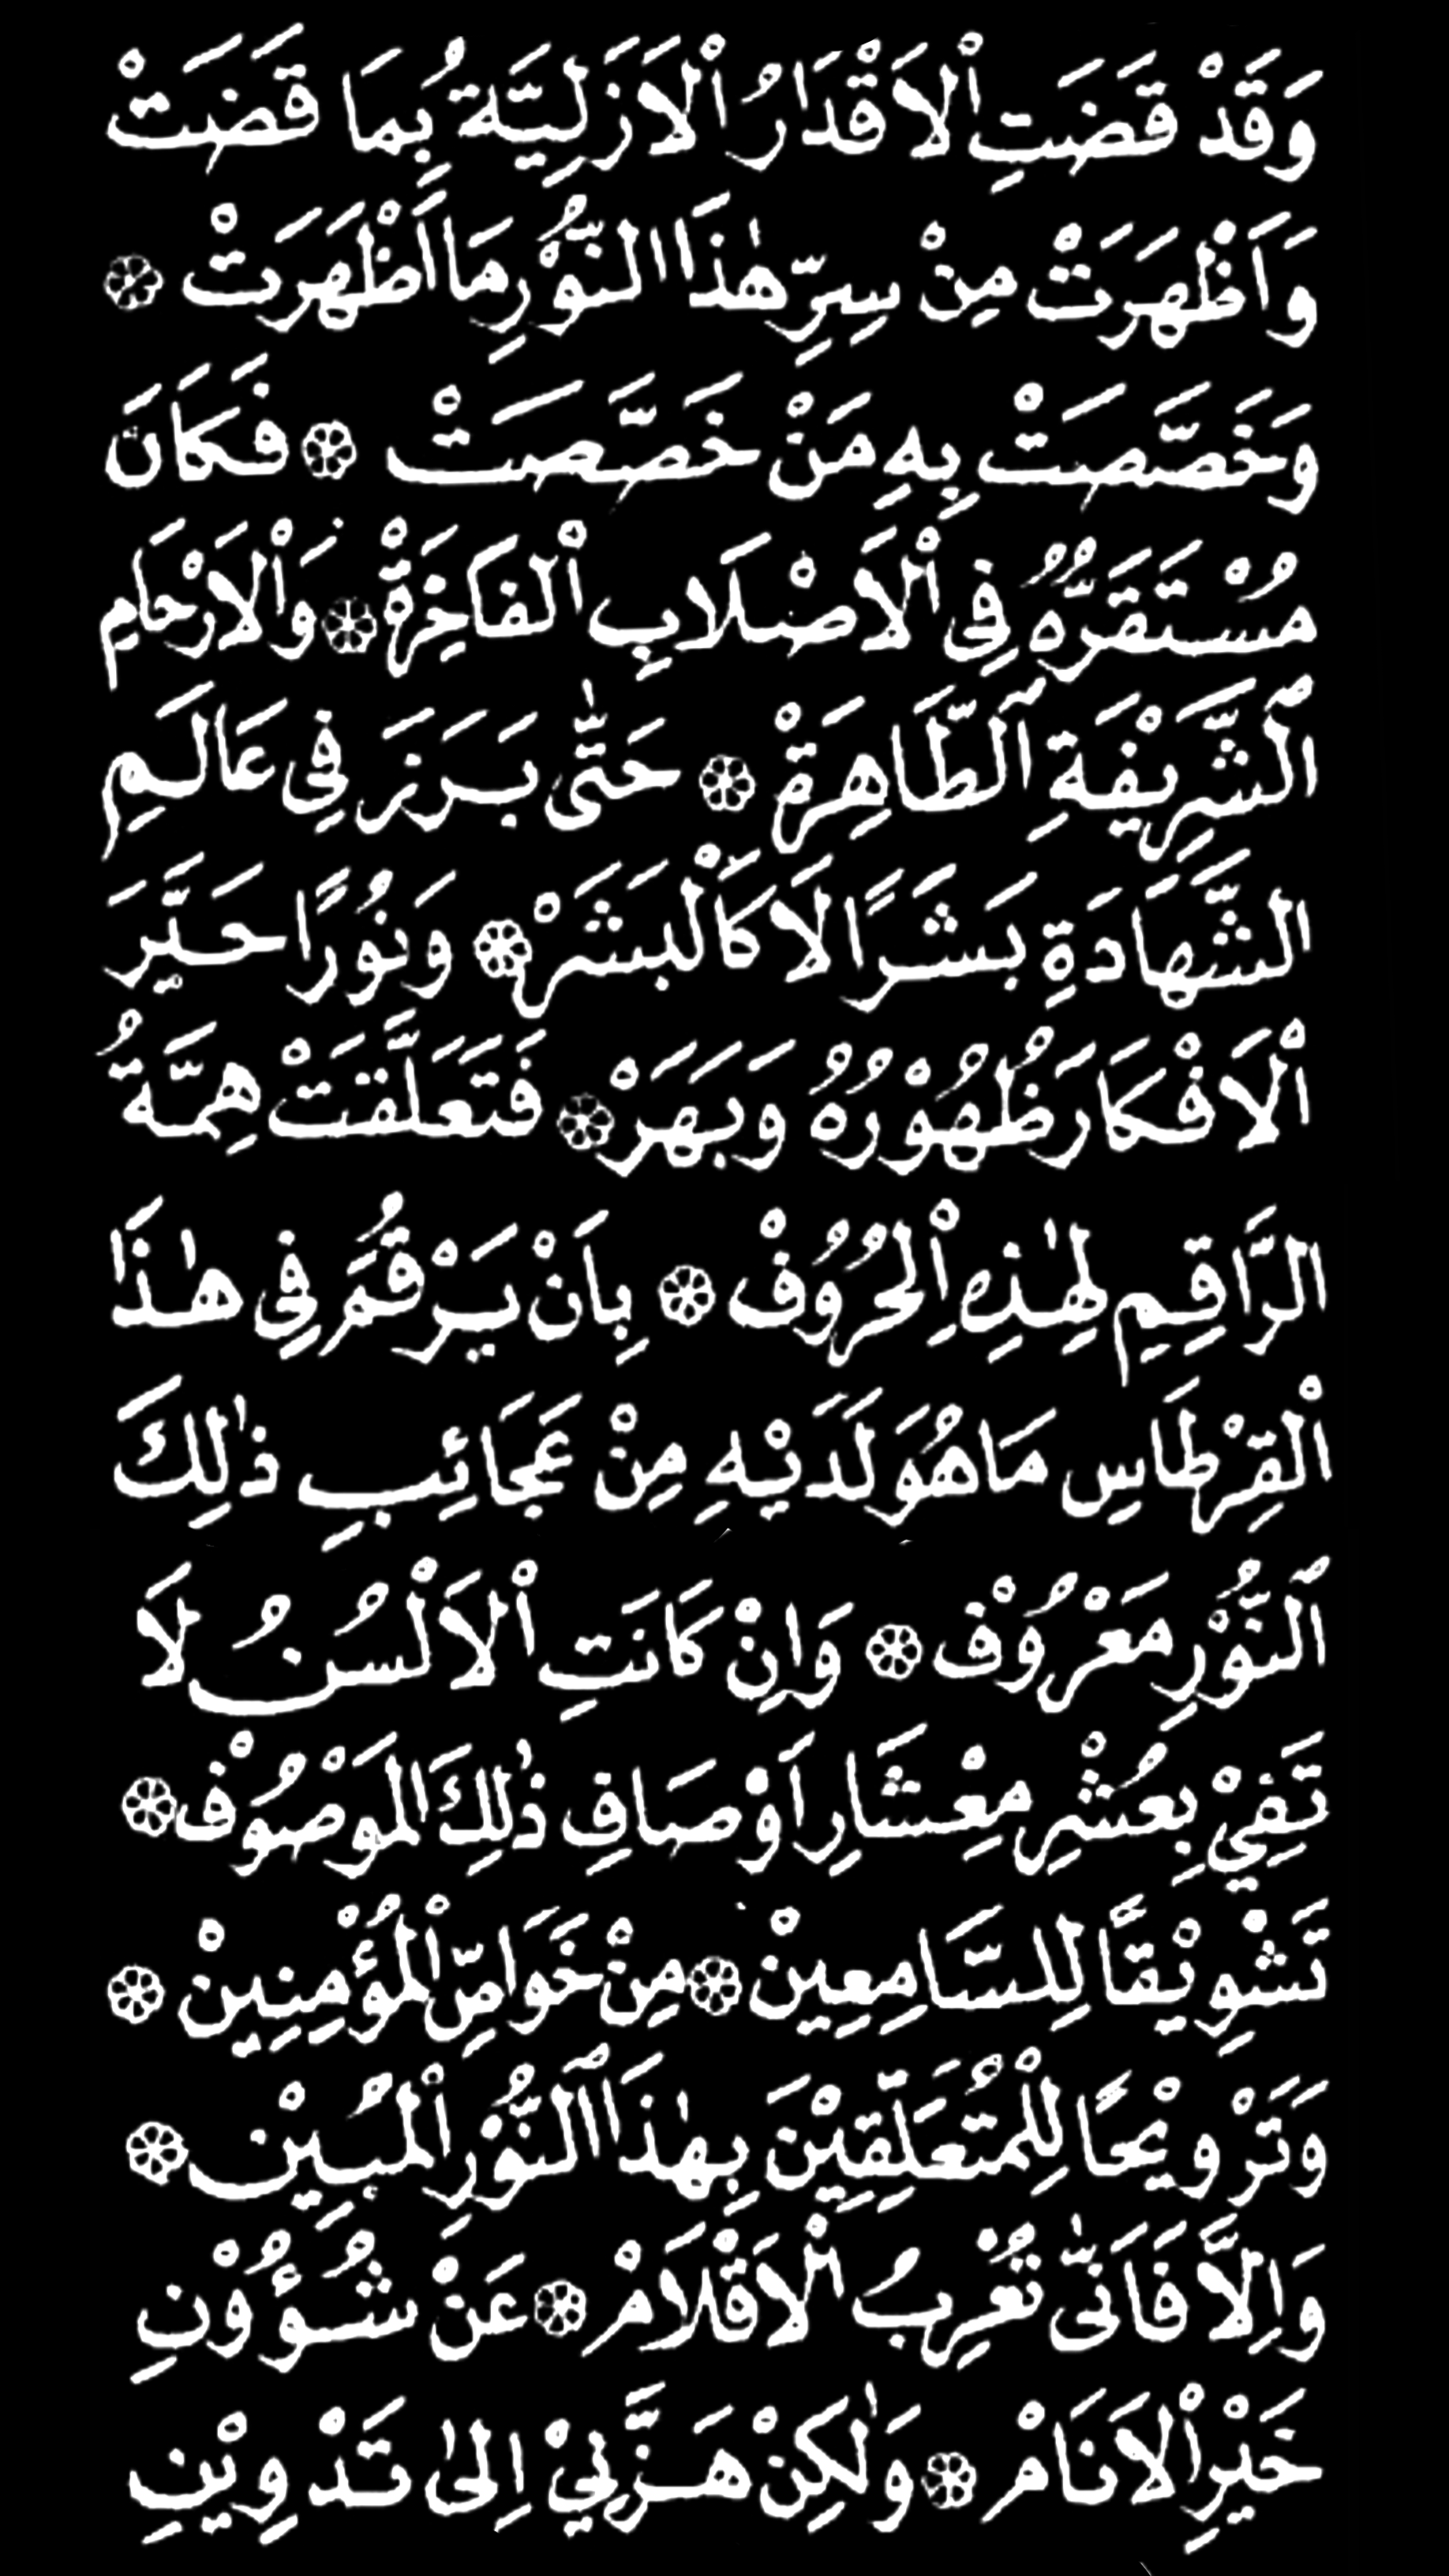 وَقَدْ قَضَتِ اْلاَقْدَارُ اْلاَزَلِيَّةُ بِمَا قَضَتْ
وَاَظْهَرَتْ مِنْ سِرِّ هٰذَا النُّوْرِ مَا اَظْهَرَتْ ۞
وَخَصَّصَتْ بِهِ مَنْ خَصَّصَتْ ۞ فَكَانَ
مُسْتَقَرُّهُ فِى اْلاَصْلَابِ اْلفَاخِرَةْ ۞ وَاْلاَرْحَامِ
الشَّرِيْفَةِ الطَّاهِرَةْ ۞ حَتّٰى بَرَزَ فِى عَالَمِ
الشَّهَادَةِ بَشَرًا لَا كَاْلبَشَرْ ۞ وَنُوْرًا حَيَّرَ
اْلاَفْكَارَ ظُهُوْرُهُ وَبَهَرْ ۞ فَتَعَلَّقَتْ هِمَّةُ
الرَّاقِمِ لِهٰذِهِ اْلحُرُوُفْ ۞ بِاَنْ يَرْقُمَ فِى هٰذَا
اْلقِرْطَاسِ مَا هُوَ لَدَيْهِ مِنْ عَجَائِبِ ذٰلِكَ
النُّوْرِ مَعْرُوُفْ ۞ وَاِنْ كَانَتِ اْلاَلْسُنُ لَا
تَفِيْ بِعُشْرِ مِعْشَارِ اَوْصَافِ ذٰلِكَ الْمَوْصُوْف ۞
تَشْوِيْقًا لِلسَّامِعِينْ ۞ مِنْ خَوَاصِّ اْلمُؤْمِنِينْ ۞
وَتَرْوِيْحًا لِلْمُتَعَلِّقِيْنَ بِهٰذَا النُّوْرِ اْلمُبِيْن ۞
وَاِلاَّ فَاَنّٰى تُعْرِبُ اْلاَقْلَامْ ۞ عَنْ شُؤُوْنِ
خَيْرِ اْلاَنَامْ ۞ وَلٰكِنْ هَزَّنِيْ اِلىٰ تَدْوِيْنِ